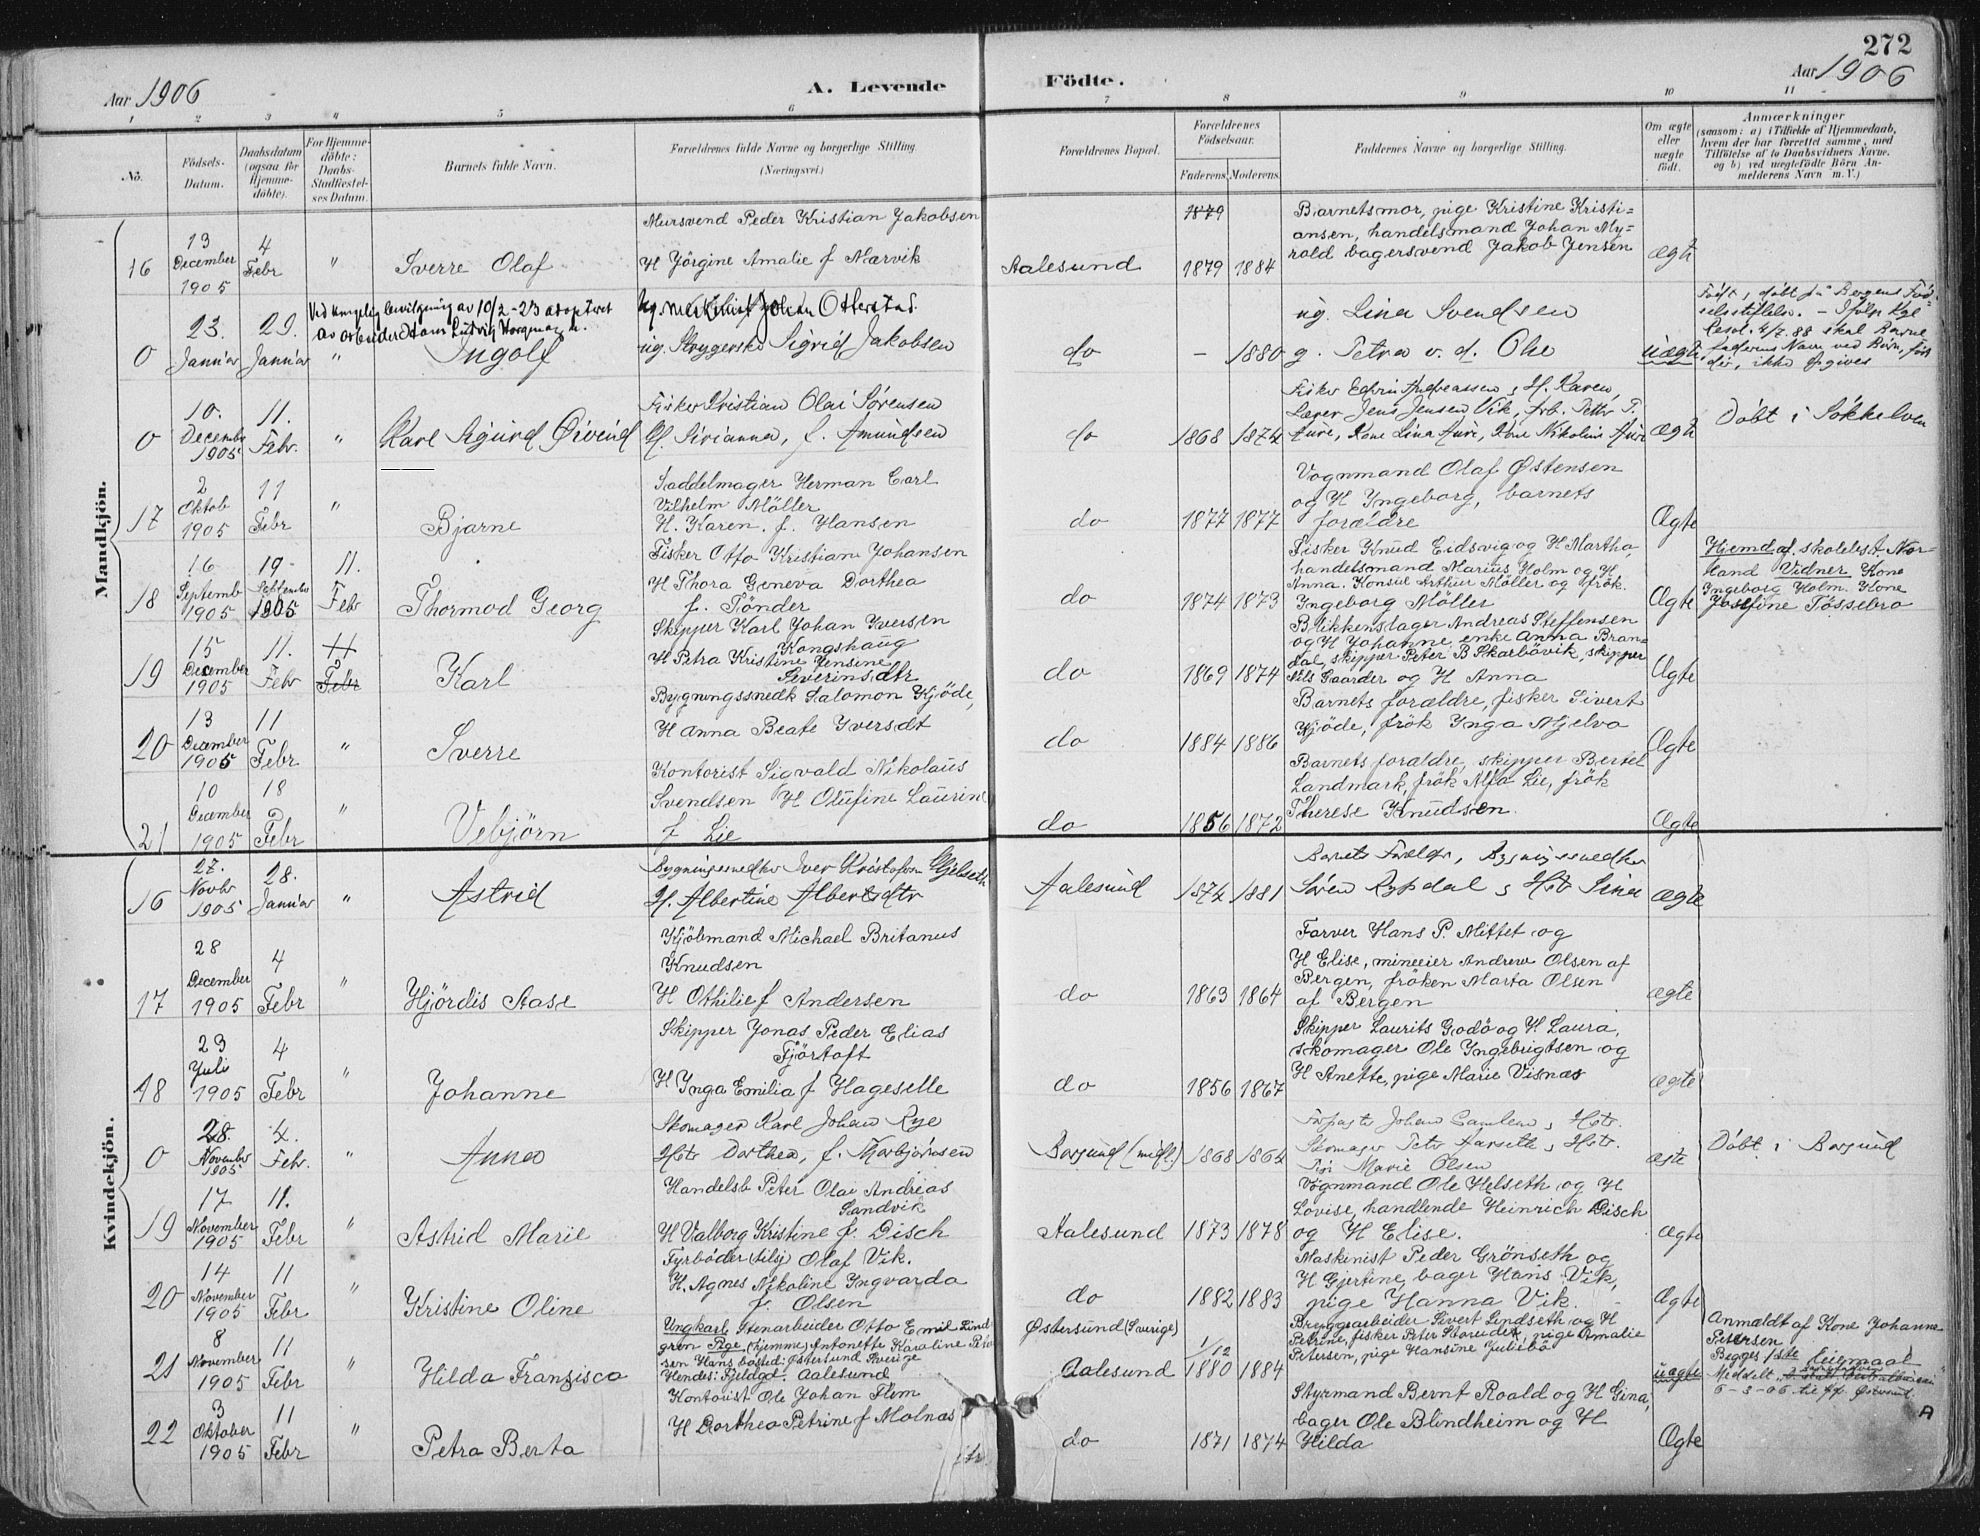 272
Aar 1906
A. Levende
Födte.
Aar 1906
1 2 3 4 5 6 7 8 9 10 11
No.
Födsels-Datum.
Daabsdatum (ogsaa for Hjemme-döbte).
For Hjemme-döbte: Daabs-Stadfæstel-ses Datum.
Barnets fulde Navn.
Forældrenes fulde Navne og borgerlige Stilling (Næringsvei.)
Forældrenes Bopæl.
Forældrenes Födselsaar.
Faderens. Moderens.
Faddernes Navne og borgerlige Stilling.
Om ægte eller uægte födt.
Anmærkninger
(saasom: a) i Tilfælde af Hjemmedaab, hvem der har forrettet samme, med Tilföielse af to Daabsvidners Navne. og b) ved uægtefödte Börn An-melderens Navn m. V.)
Mandkjön.
16
13 December 1905
4 Febr
"
Sverre Olaf
Mursvend Peder Kristian Jakobsen
H Jörgine Amalie f Marvik
Aalesund
1879
1879 1884
Barnetsmor, pige Kristine Kristi=
ansen, handelsmand Johan My=
rold bagersvend Jakob Jensen
ægte
0
23. Januar
29. Januar
"
Ved kongelig bevilgning av 10/2-23 adopteret
av arbeider Hans Ludvig
Ingolf
ug. Maskinist Johan Otterstad
ug. Strygerske Sigrid Jakobsen
do
– 1880
ug. Lina Svendsen
g. Petra v. d. Ohe
uægte
Födt, döbt på Bergens Föd-
selsstiftelse. – Ifölge Kgl
Resol. 4/2.88 skal Barne
faderens Navn ved Börn, födt
der, ikke opgives
0
10. Decembr 1905
11. Febr.
"
Karl Sigurd Öivind
Fisker Kristian Olai Sörensen
H. Sirianna, f. Amundsen
do
1868 1874
Fisker Edvin Andreassen, H. Karen,
Lærer Jens Jensen Vik, frb. Petter P.
Aure, Kone Lina Aure, Kone Nikoline Aure
ægte
Döbt i Sökkelven
17
2 Oktob 1905
11 Febr
"
Bjarne
Saddelmager Herman Carl
Vilhelm Möller
H. Karen. f. Hansen
do
1877 1877
Vognmand Olaf Østensen
og H Ingeborg, barnets
forældre
Ægte
18
16 Septemb 1905
19 September 1905
11. Febr
Thormod Georg
Fisker Otto Kristian Johansen
H Thora Geneva Dorthea
f. Tönder
do
1874 1873
Fisker Knud Eidsvig og H Martha,
handelsmand Marius Holm og H
Anna. Konsul Arthur Möller og frök.
Ingeborg Möller
Ægte
Hjemd af skolebest. Nor-
land Vidner Kone
Ingeborg Holm. Kone
Josefine Tössebro
19
15 December 1905
11. Febr
11 Febr
Karl
Skipper Karl Johan Iversen
Kongshaug
H Petra Kristine Jensine
Severinsdtr
do
1869 1874
Blikkenslager Andreas Steffensen
og H Johanne, enke Anna Bran=
dal, skipper Peter B Skarbövik, skipper
Nils Gaarder og H Anna
Ægte
20
13 December 1905
11 Febr
"
Sverre
Bygningssnedk Salomon Kjöde,
H Anna Beate Iversdt
do
1884 1886
Barnets forældre, fisker Sivert
Kjöde, frök Inga Mjelva
Ægte
21
10 December 1905
18 Febr
"
Vebjörn
Kontorist Sigvald Nikolaus
Svendsen H Olufine Laurine
f Lie
do
1856 1872
Barnets forældre, skipper Bertel
Landmark, frök Alfa Lie, frök
Therese Knudsen.
Ægte
Kvindekjön.
16
27. Novbr 1905
28. Januar
"
Astrid
Bygningssnedker Iver Kristofersen Gjelseth
H. Albertine Albertsdtr
Aalesund
1874 1881
Barnets Forældre, Bygningssnedker
Sören Rypdal, Hst Lina
ægte
17
28 December 1905
4 Febr
"
Hjördis Aase
Kjöbmand Michael Britanus
Knudsen
H Othilie f Andersen
do
1863 1864
Farver Hans P. Mittet og
H Elise, mineeier Andrew Olsen af
Bergen, fröken Marta Olsen
af Bergen
ægte
18
23 Juli 1905
4 Febr
"
Johanne
Skipper Jonas Peder Elias
Fjörtoft
H Inga Emilia f Hageselle
do
1856 1867
Skipper Laurits Godö og H. Laura,
skomager Ole Ingebrigtsen og
H Anette, pige Marie Visnæs
ægte
0
28. Novembr 1905
4. Febr.
"
Anna
Skomager Karl Johan Rye
Hst Dorthea, f. Thorbjörnsen
Borgund (midl.)
1868 1864
Johan Gamlem, Hst.
Skomager Petr Aarseth, Hst.
Pige Marie Olsen
ægte
Döbt i Borgund
19
17 November 1905
11. Febr
"
Astrid Marie
Handelsb Peter Olai Andreas
Sandvik
H Valborg Kristine f. Disch
Aalesund
1873 1878
Vognmand Ole Helseth og H
Lovise, handlende Heinrich Disch
og H Elise.
ægte
20
14 November 1905
11 Febr
"
Kristine Oline
Fyrböder tilsj Olaf Vik.
H. Agnes Nikoline Ingvarda
f. Olsen
do
1882 1883
Maskinist Peder Grönseth og
H Gjertine, bager Hans Vik,
pige Hanna Vik.
Ægte
21
8 November 1905
11 Febr
"
Hilda Franzisca
Ungkarl Stenarbeider Otto Emil Lind-
gren Pige (hjemme) Antonette Karoline Peter
sen Hans bosted: Østersund Sverige
Hendes: Fjeldgd. Aalesund
Østersund (Sverige)
Aalesund
1/12
1880 1884
Bryggearbeider Sivert Lindseth og H
Petrine, fisker Peter Storeide, pige Amalie
Petersen, pige Hansine Juliebö
uægte
Anmeldt af Kone Johanne
Petersen
Begges 1ste leiermaal
Meddelt
6-3-06 til
22
3 Oktober 1905
11 Febr
"
Petra Berta
Kontorist Ole Johan Flem
H Dorthea Petrine f Molnæs
do
1871 1874
Styrmand Bernt Roald og H Gina,
bager Ole Blindheim og H
Hilda
Ægte
A